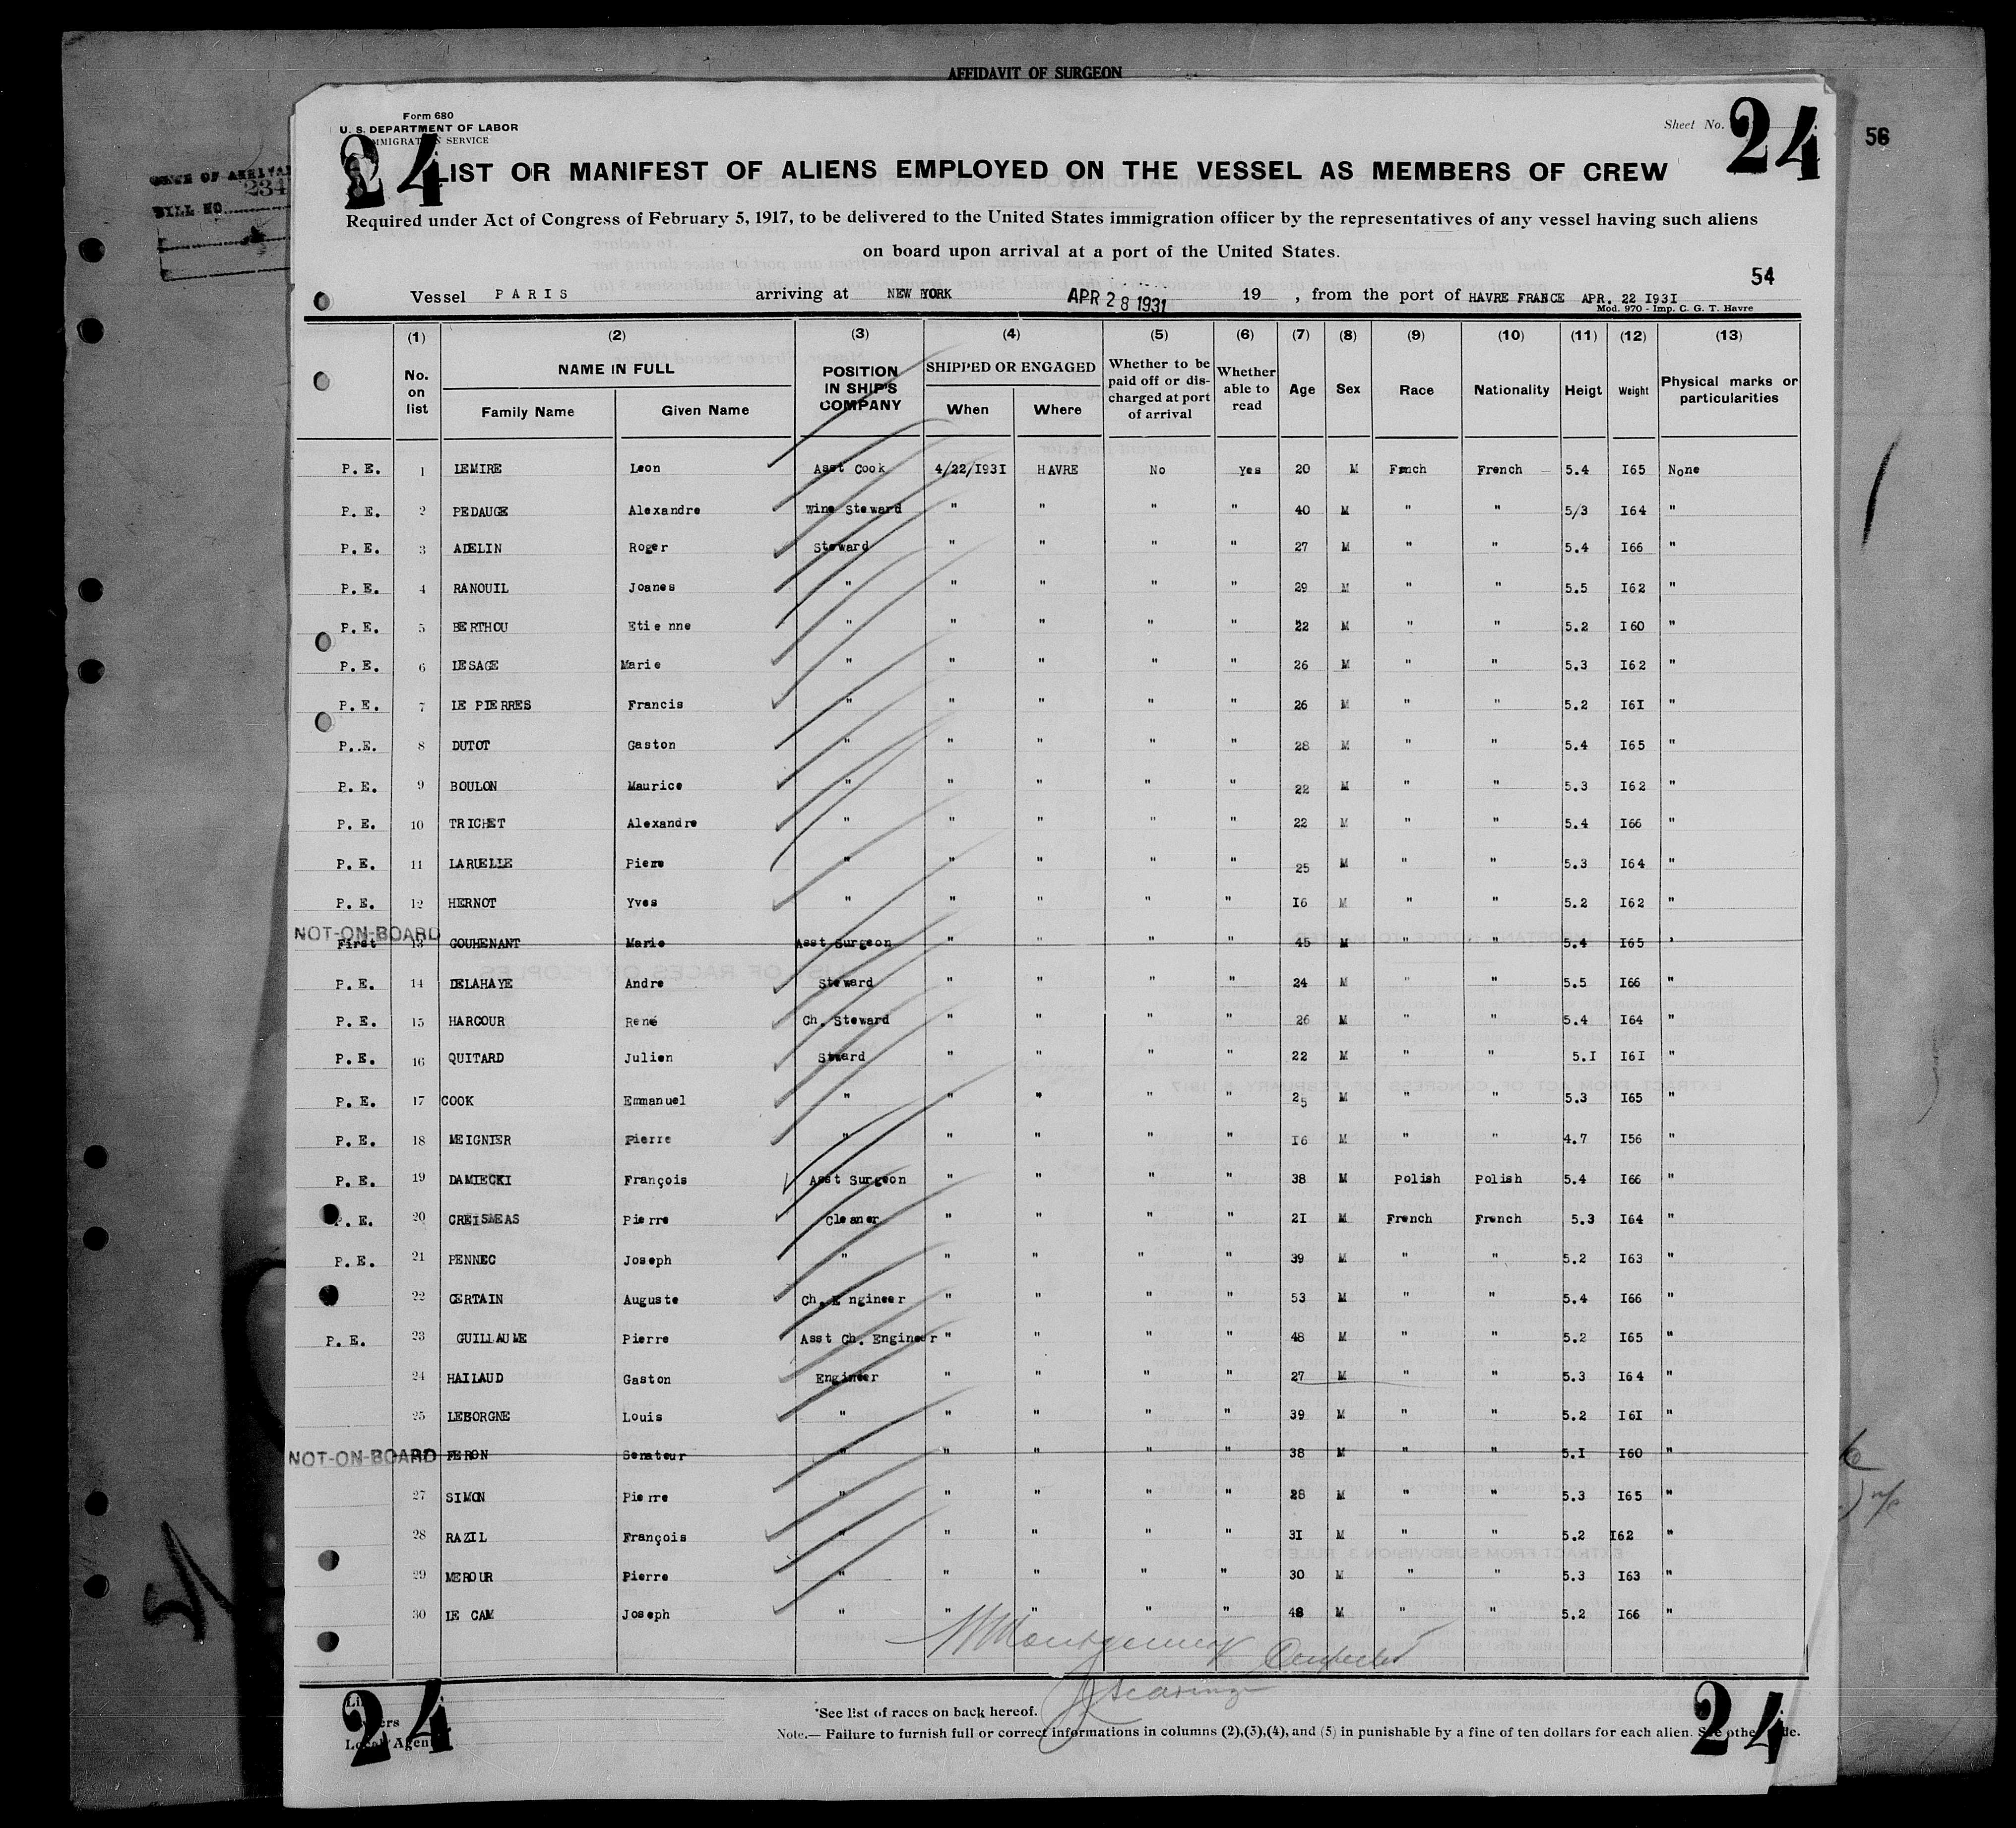 AFFIDAVIT OF SURGEON
Form 680
U. S. DEPARTMENT OF LABOR
IMMIGRATION SERVICE
Sheet No.
24
24
56
234
BILL NO
LIST OR MANIFEST OF ALIENS EMPLOYED ON THE VESSEL AS MEMBERS OF CREW
Required under Act of Congress of February 5, 1917, to be delivered to the United States immigration officer by the representatives of any vessel having such aliens
on board upon arrival at a port of the United States.
54
Vessel PARIS arriving at NEW YORK APR 28 1931 19 , from the port of HAVRE FRANCE APR. 22 I93I
Mod. 970 - Imp. C. G. T. Havre
(1) (2) (3) (4) (5) (6) (7) (8) (9) (10) (11) (12) (13)
No. on list NAME IN FULL Family Name Given Name POSITION IN SHIP'S COMPANY SHIPPED OR ENGAGED When Where Whether to be paid off or discharged at port of arrival Whether able to read Age Sex Race Nationality Heigt Weight Physical marks or particularities
P. E. 1 LEMIRE Leon Asst Cook 4/22/I93I HAVRE No Yes 20 M Fench French 5.4 I65 None
P. E. 2 PEDAUGE Alexandre Wine Steward " " " " 40 M " " 5/3 I64 "
P. E. 3 ADELIN Roger Steward " " " " 27 M " " 5.4 I66 "
P. E. 4 RANOUIL Joanes " " " " " 29 M " " 5.5 I62 "
P. E. 5 BERTHOU Etienne " " " " " 22 M " " 5.2 I60 "
P. E. 6 LESAGE Marie " " " " " 26 M " " 5.3 I62 "
P. E. 7 LE PIERRES Francis " " " " " 26 M " " 5.2 I6I "
P..E. 8 DUTOT Gaston " " " " " 28 M " " 5.4 I65 "
P. E. 9 BOULON Maurice " " " " " 22 M " " 5.3 I62 "
P. E. 10 TRICHET Alexandre " " " " " 22 M " " 5.4 I66 "
P. E. 11 LARUELLE Piere " " " " " 25 M " " 5.3 I64 "
P. E. 12 HERNOT Yves " " " " " I6 M " " 5.2 I62 "
NOT-ON-BOARD
First 13 GOUHENANT Marie Asst Surgeon " " " " 45 M " " 5.4 I65 '
P. E. 14 DELAHAYE Andre Steward " " " " 24 M " " 5.5 I66 "
P. E. 15 HARCOUR René Ch. Steward " " " " 26 M " " 5.4 I64 "
P. E. 16 QUITARD Julien Steward " " " " 22 M " " 5.I I6I "
P. E. 17 COOK Emmanuel " " " " " 25 M " " 5.3 I65 "
P. E. 18 MEIGNIER Pierre " " " " " I6 M " " 4.7 I56 "
P. E. 19 DAMIECKI François Asst Surgeon " " " " 38 M Polish Polish 5.4 I66 "
P. E. 20 CREISMEAS Pierre Cleaner " " " " 2I M French French 5.3 I64 "
P. E. 21 PENNEC Joseph " " " " " 39 M " " 5.2 I63 "
22 CERTAIN Auguste Ch. E ngineer " " " " 53 M " " 5.4 I66 "
P. E. 23 GUILLAUME Pierre Asst Ch. Engineer " " " " 48 M " " 5.2 I65 "
24 HAILAUD Gaston Engineer " " " " 27 M " " 5.3 I64 "
25 LEBORGNE Louis " " " " " 39 M " " 5.2 I6I "
NOT-ON-BOARD FERON Senateur " " " " " 38 M " " 5.I I60 "
27 SIMON Pierre " " " " " 28 M " " 5.3 I65 "
28 RAZIL François " " " " " 3I M " " 5.2 I62 "
29 MEROUR Pierre " " " " " 30 M " " 5.3 I63 "
30 LE CAM Joseph " " " " " 48 M " " 5.2 I66 "
Montgomery
*See list of races on back hereof.
Note.— Failure to furnish full or correct informations in columns (2),(3),(4), and (5) in punishable by a fine of ten dollars for each alien. See other side.
Local Agent
24
24